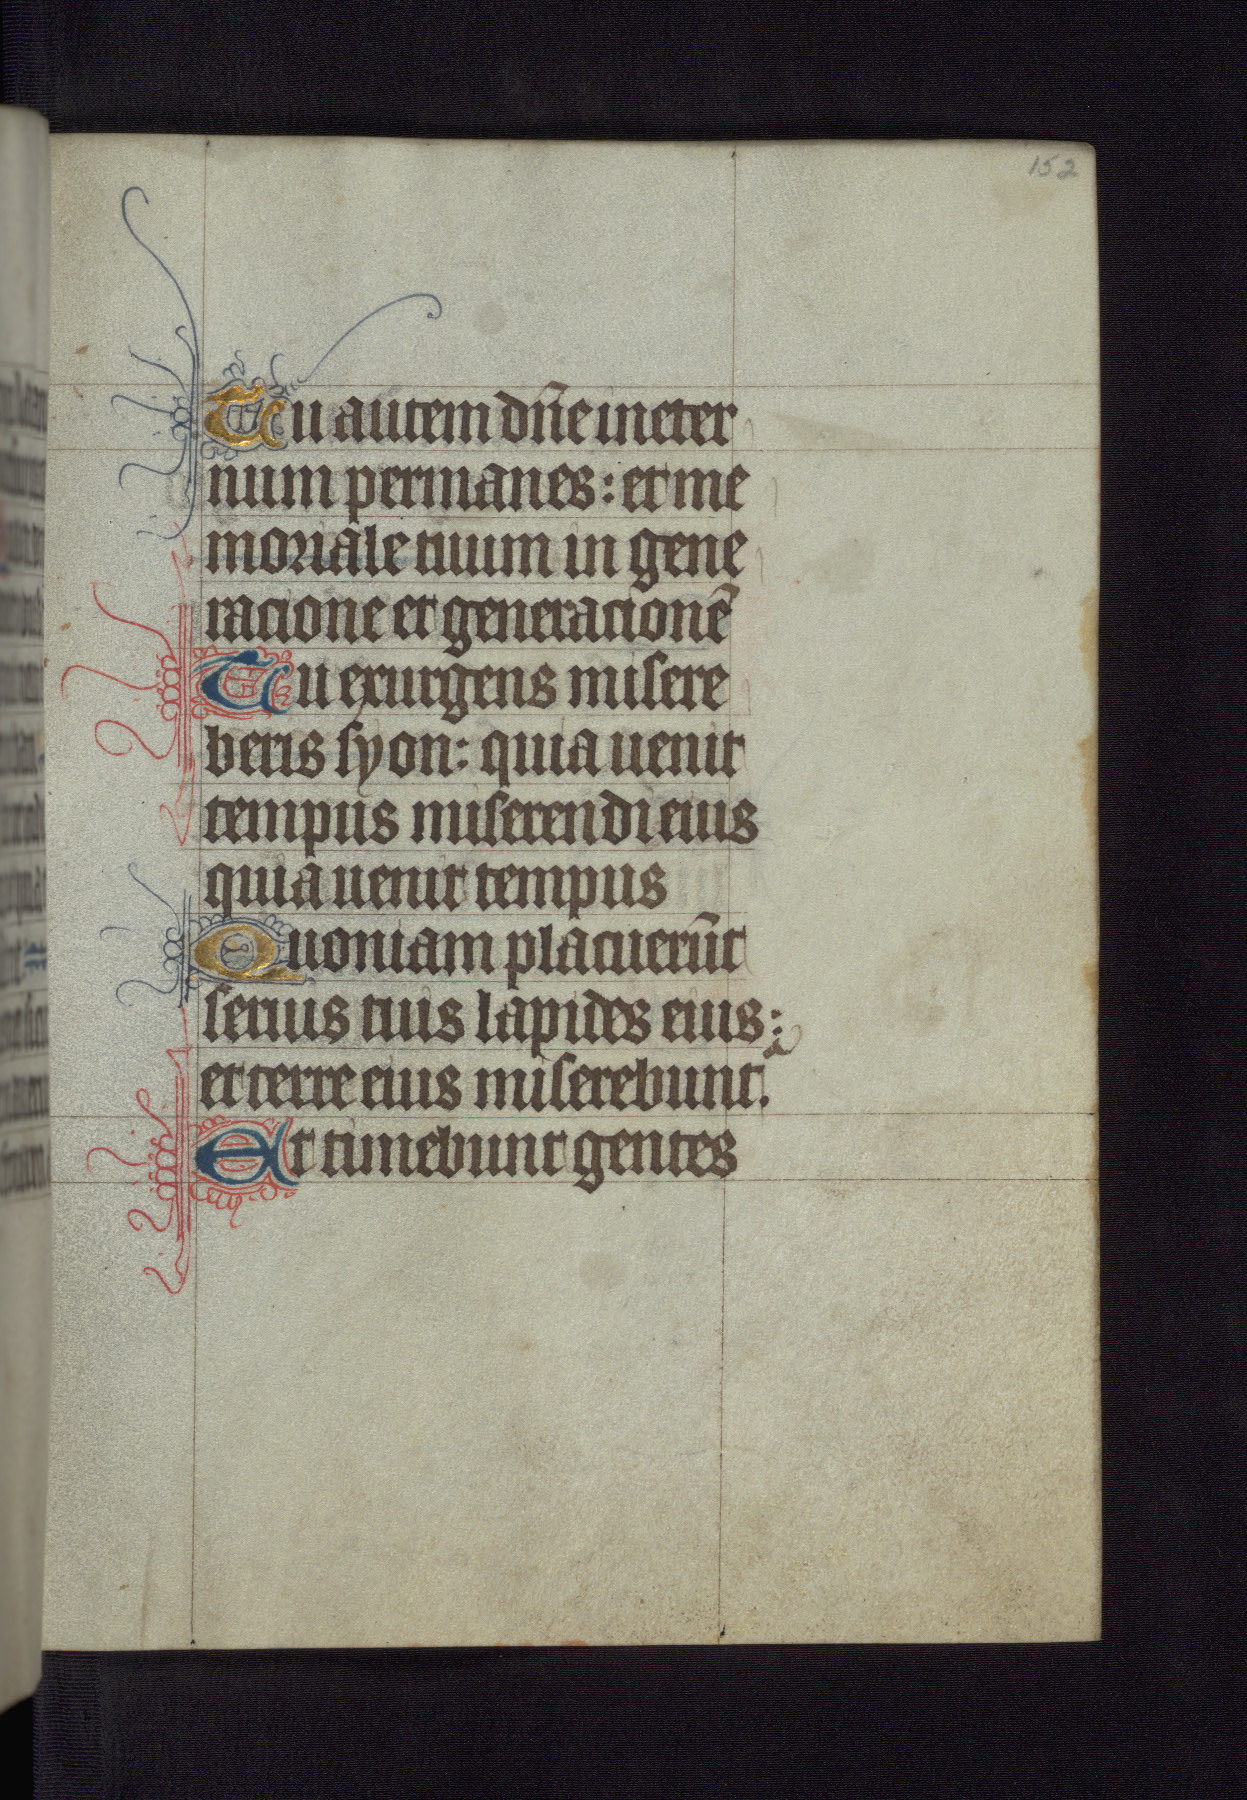 152
Tu autem dn̄e ineter
num permanes: et me
moriale tuum in gene
racione et generacionē
Tu exurgens misere
beris syon: quia uenit
tempus miserendi eius
quia uenit tempus
Quoniam placuerūt
seruis tuis lapides eius:
et terre eius miserebunt.
Et timebunt gentes